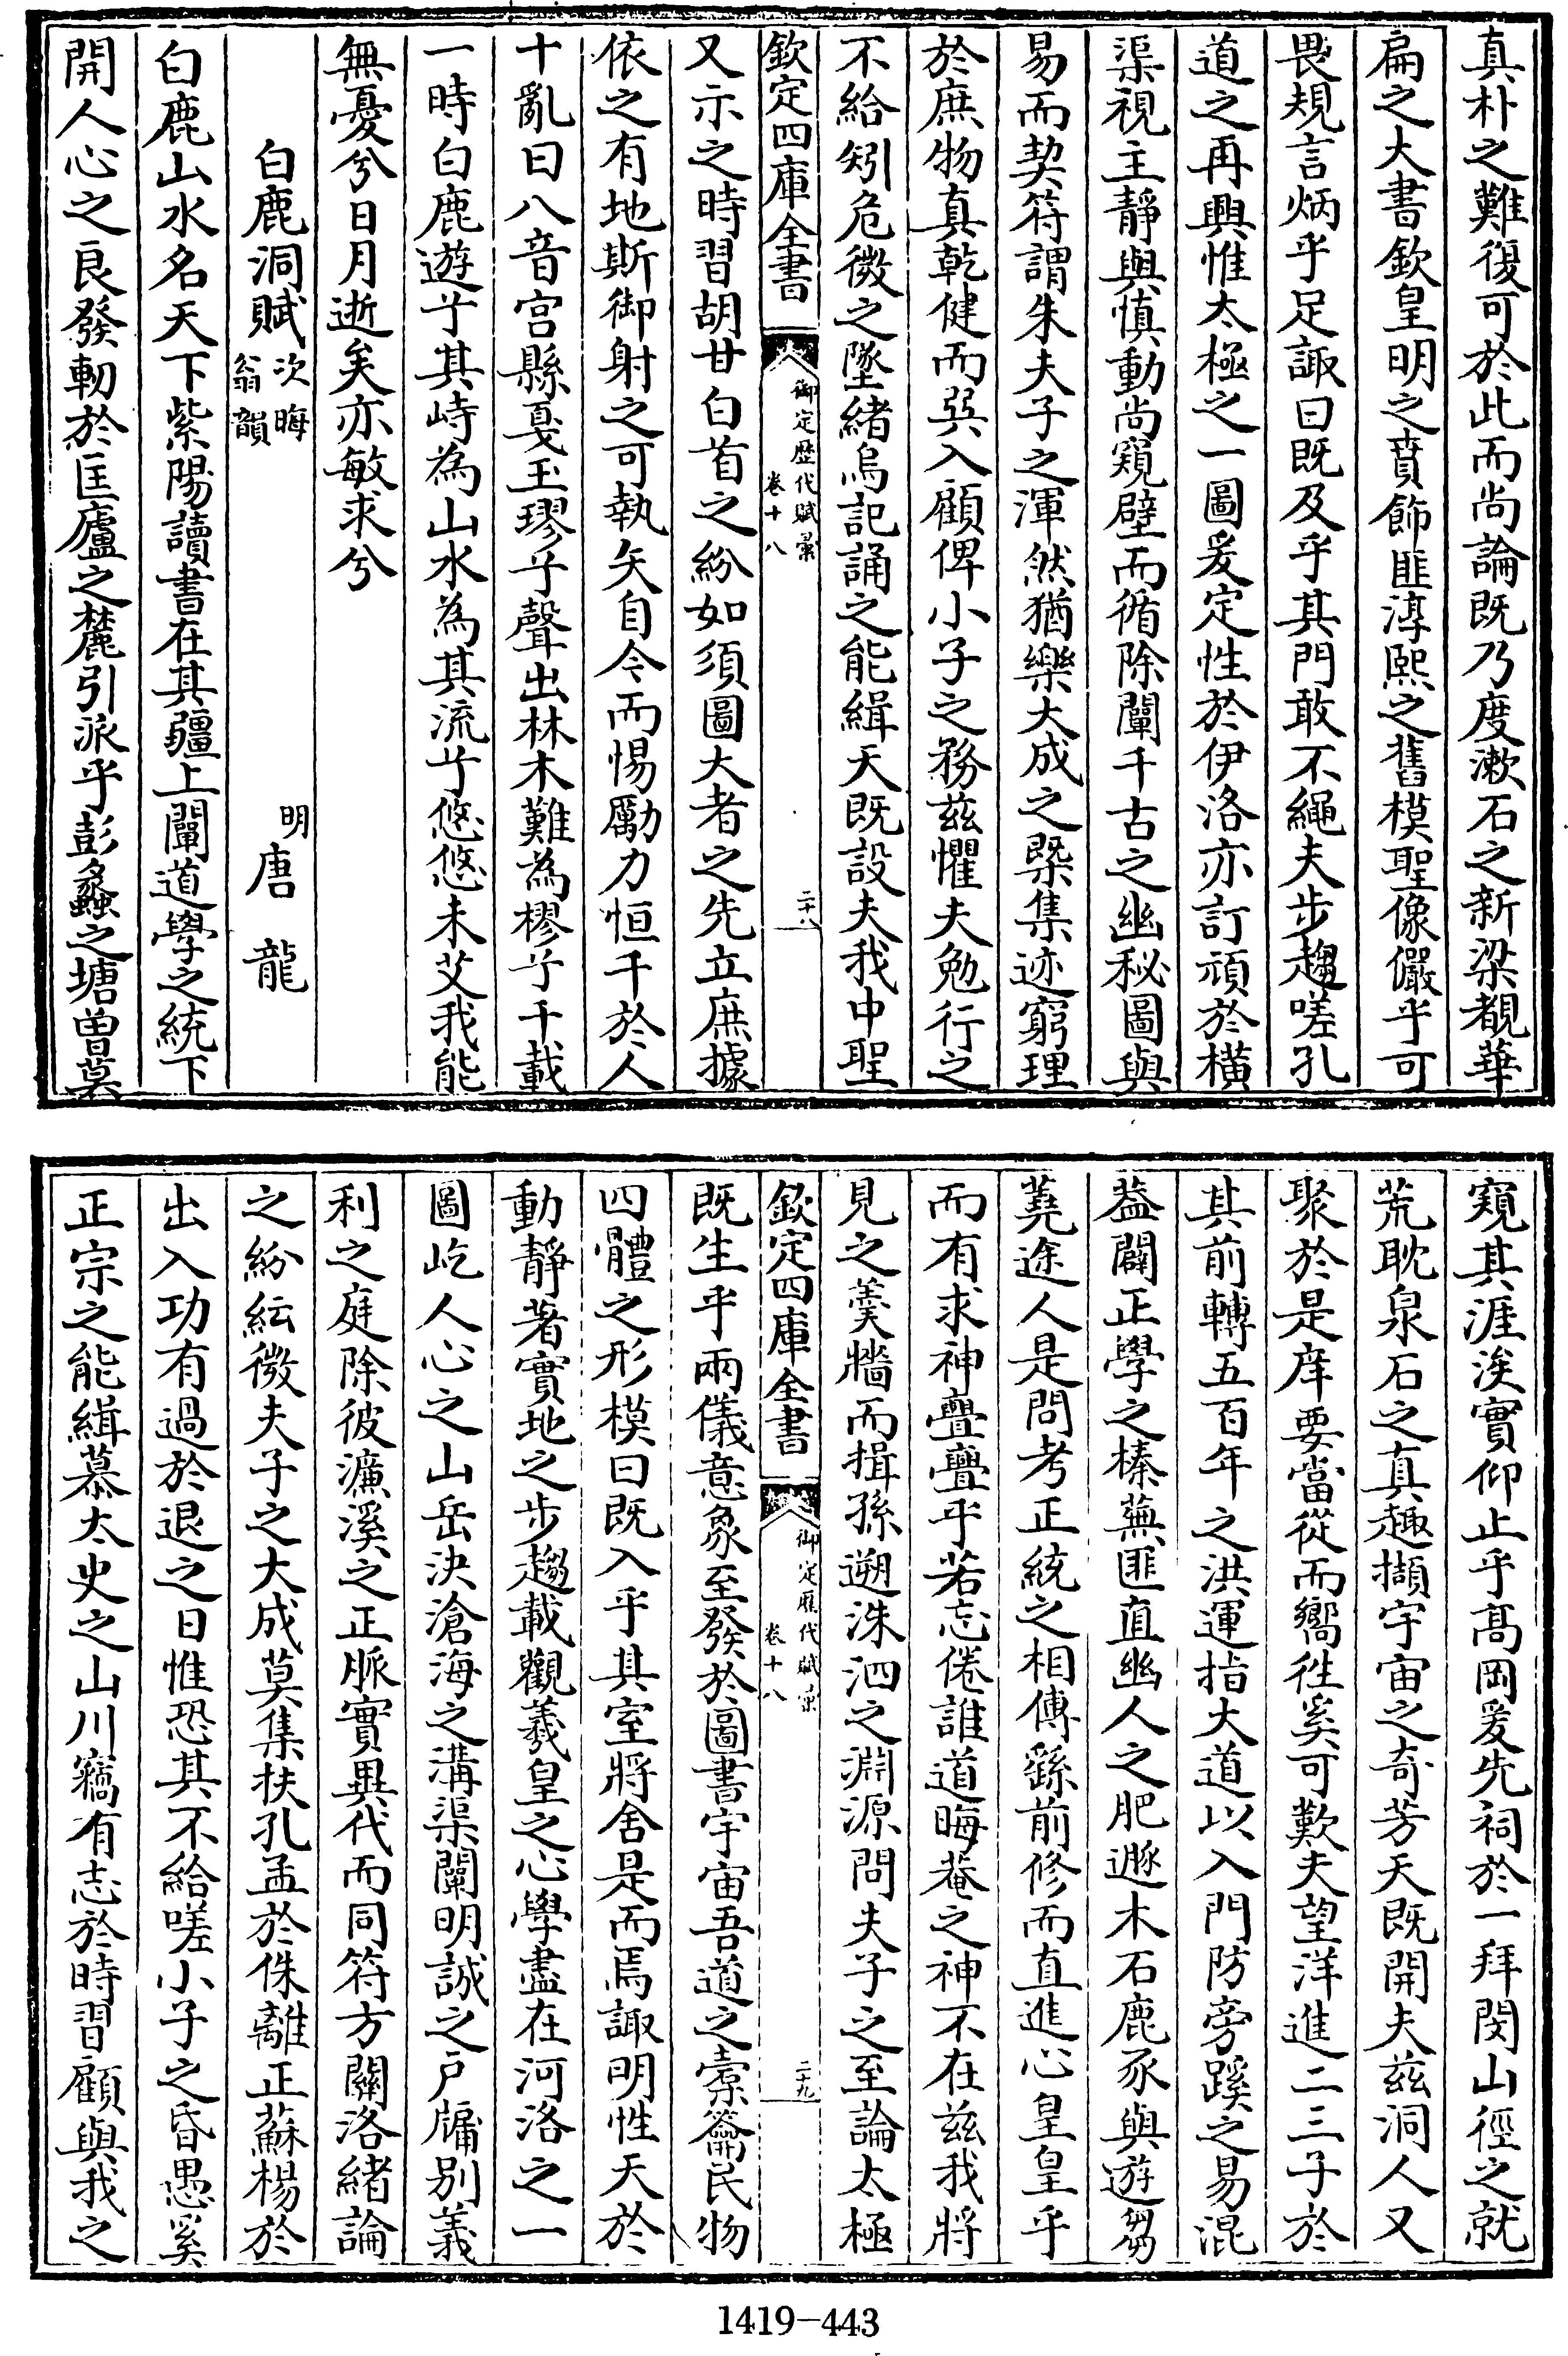 真朴之難復可於此而尚論既乃度漱石之新梁覩華
扁之大書欽皇明之賁飾匪淳熙之舊模聖像儼乎可
畏規言炳乎足諏曰既及乎其門敢不繩夫步趨嗟孔
道之再興惟太極之一圖爰定性於伊洛亦訂頑於橫
渠視主靜與慎動尚窺壁而循除闡千古之幽秘圖與
易而契符謂朱夫子之渾然猶樂大成之槩集迹窮理
於庶物真乾健而巽入顧俾小子之務兹懼夫勉行之
不給矧危微之墜緒烏記誦之能緝天既設夫我中聖
欽定四庫全書
御定歴代賦彚
卷十八
二十八
又示之時習胡甘白首之紛如須圖大者之先立庶據
依之有地斯御射之可執矢自今而惕勵力恒千於人
十亂曰八音宫縣戛玉璆兮聲出林木難為樛兮千載
一時白鹿遊兮其峙為山水為其流兮悠悠未艾我能
無憂兮日月逝矣亦敏求兮
白鹿洞賦次晦翁韻
明唐龍
白鹿山水名天下紫陽讀書在其疆上闡道學之統下
開人心之良發軔於匡廬之麓引派乎彭蠡之塘曽莫
窺其涯涘實仰止乎髙岡爰先祠於一拜閔山徑之就
荒耽泉石之真趣擷宇宙之奇芳天既開夫兹洞人又
聚於是庠要當從而嚮徃奚可歎夫望洋進二三子於
其前轉五百年之洪運指大道以入門防旁蹊之易混
益闢正學之榛蕪匪直幽人之肥遯木石鹿豕與遊芻
蕘途人是問考正統之相傳繇前修而直進心皇皇乎
而有求神亹亹乎若忘倦誰道晦菴之神不在兹我將
見之羮牆而揖孫遡洙泗之淵源問夫子之至論太極
欽定四庫全書
御定歴代賦彚
卷十八
二十九
既生乎兩儀意象至發於圖書宇宙吾道之橐籥民物
四體之形模曰既入乎其室將舍是而焉諏明性天於
動靜著實地之步趨載觀羲皇之心學盡在河洛之一
圖屹人心之山岳決滄海之溝渠闡明誠之戶牖别義
利之庭除彼濂溪之正脈實異代而同符方關洛緒論
之紛紜微夫子之大成莫集扶孔孟於侏離正蘇楊於
出入功有過於退之日惟恐其不給嗟小子之昏愚奚
正宗之能緝慕太史之山川竊有志於時習顧與我之
1419-443